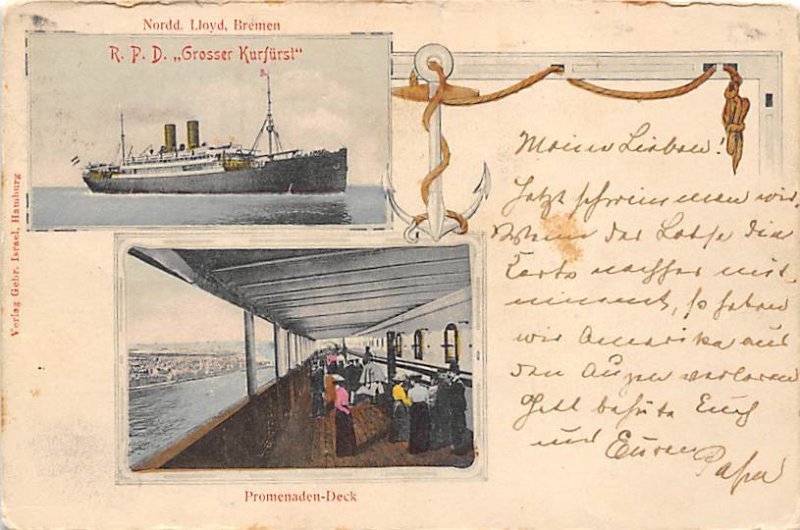 Nordd. Lloyd, Bremen
R. P. D. „Grosser Kurfürst“
Verlag Gebr. Israel, Hamburg
Promenaden-Deck
Meine Lieben!
Jetzt schwimmen wir,
Wenn der Lotse die
Karte nachher mit
nimmt, so haben
wir Amerika aus
den Augen verloren
Gott behüte Euch
und Euren
Papa